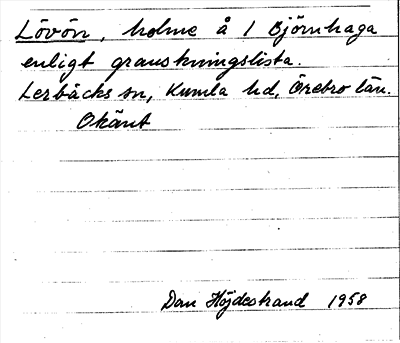 Lövön, holme å 1 Björnhaga
enligt granskningslista.
Lerbäcks sn, Kumla hd, Örebro län.
Okänt
Dan Höjdestrand 1958